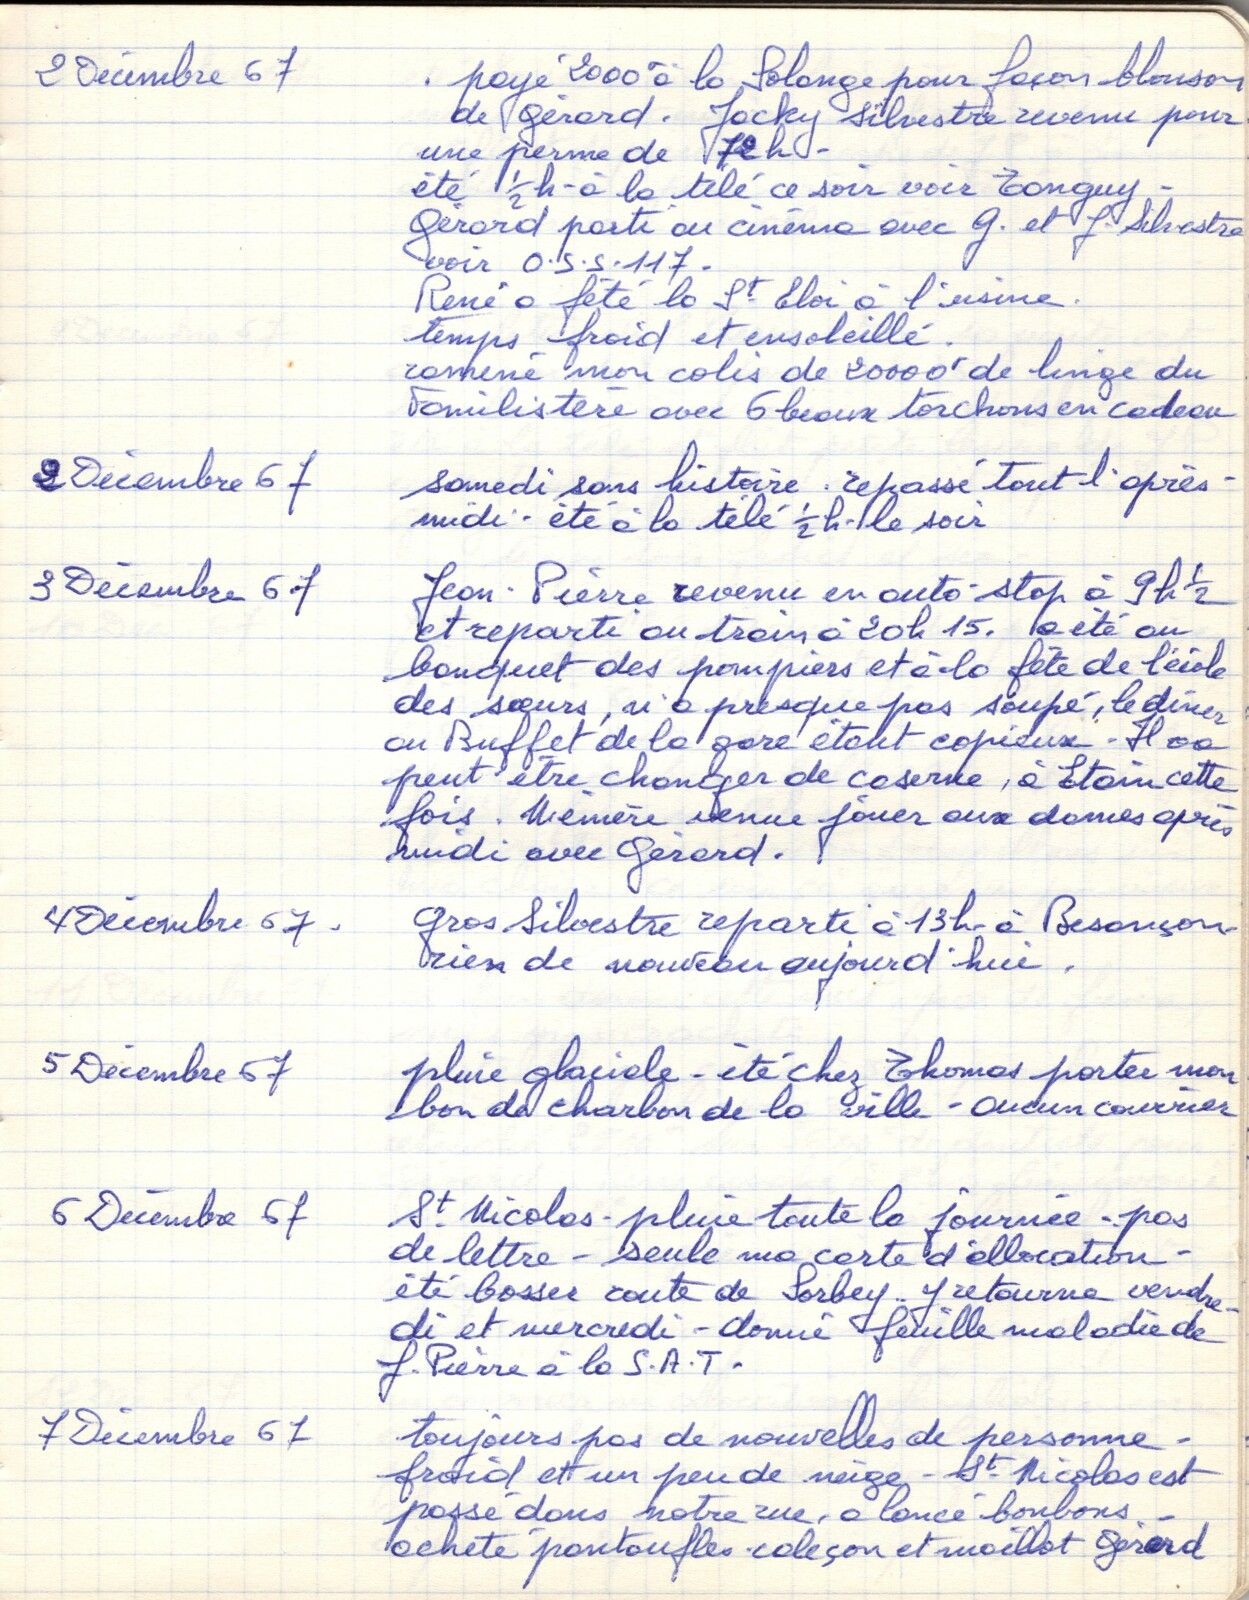 2 Décembre 67 . payé 2000F à la Solange pour façon blouson
de Gérard. Jacky Silvestre revenu pour
une perme de 72h -
été ½h - à la télé ce soir voir Tanguy -
Gérard parti au cinéma avec G. et J. Silvestre
voir O.S.S.117.
René a fêté la St Eloi à l'usine.
temps froid et ensoleillé.
ramené mon colis de 20000F de linge du
Familistère avec 6 beaux torchons en cadeau
2 Décembre 67 samedi sans histoire. repassé tout l'après-
midi - été à la télé ½h - le soir
3 Décembre 67 Jean-Pierre revenu en auto-stop à 9h½
et reparti au train à 20h15. a été au
banquet des pompiers et à la fête de l'école
des sœurs, n'a presque pas soupé, le dîner
au Buffet de la gare étant copieux - Il va
peut être changer de caserne, à Etain cette
fois. Mémère venue jouer aux dames après
midi avec Gérard.
4 Décembre 67. Gros Silvestre reparti à 13h - à Besançon -
rien de nouveau aujourd'hui.
5 Décembre 67 pluie glaciale - été chez Thomas porter mon
bon de charbon de la ville - aucun courrier
6 Décembre 67 St Nicolas - pluie toute la journée - pas
de lettre - seule ma carte d'allocation -
été bosser route de Sorbey. y retourne vendre-
di et mercredi - donné feuille maladie de
J. Pierre à la S.A.T.
7 Décembre 67 toujours pas de nouvelles de personne -
froid et un peu de neige - St Nicolas est
passé dans notre rue, a lancé bonbons -
acheté pantoufles caleçon et maillot Gérard